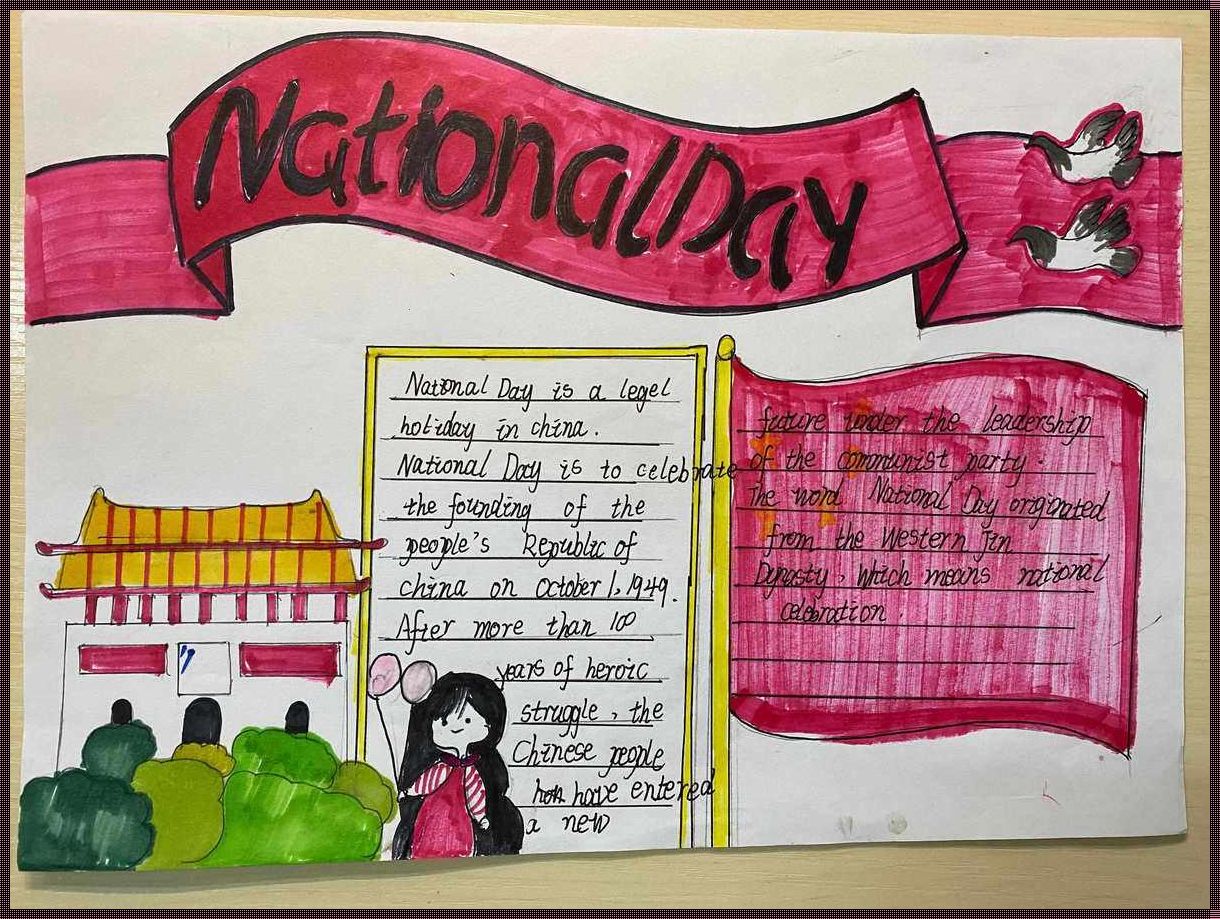 NationalDay
National Day is a legel
holiday in china.
National Day is to celebrate
the founding of the
people's Republic of
china on October 1, 1949.
After more than 100
years of heroic
struggle, the
Chinese people
have entered
a new
future under the leadership
of the communist party.
The word National Day originated
from the Western Jin
Dynasty, which means national
celebration.